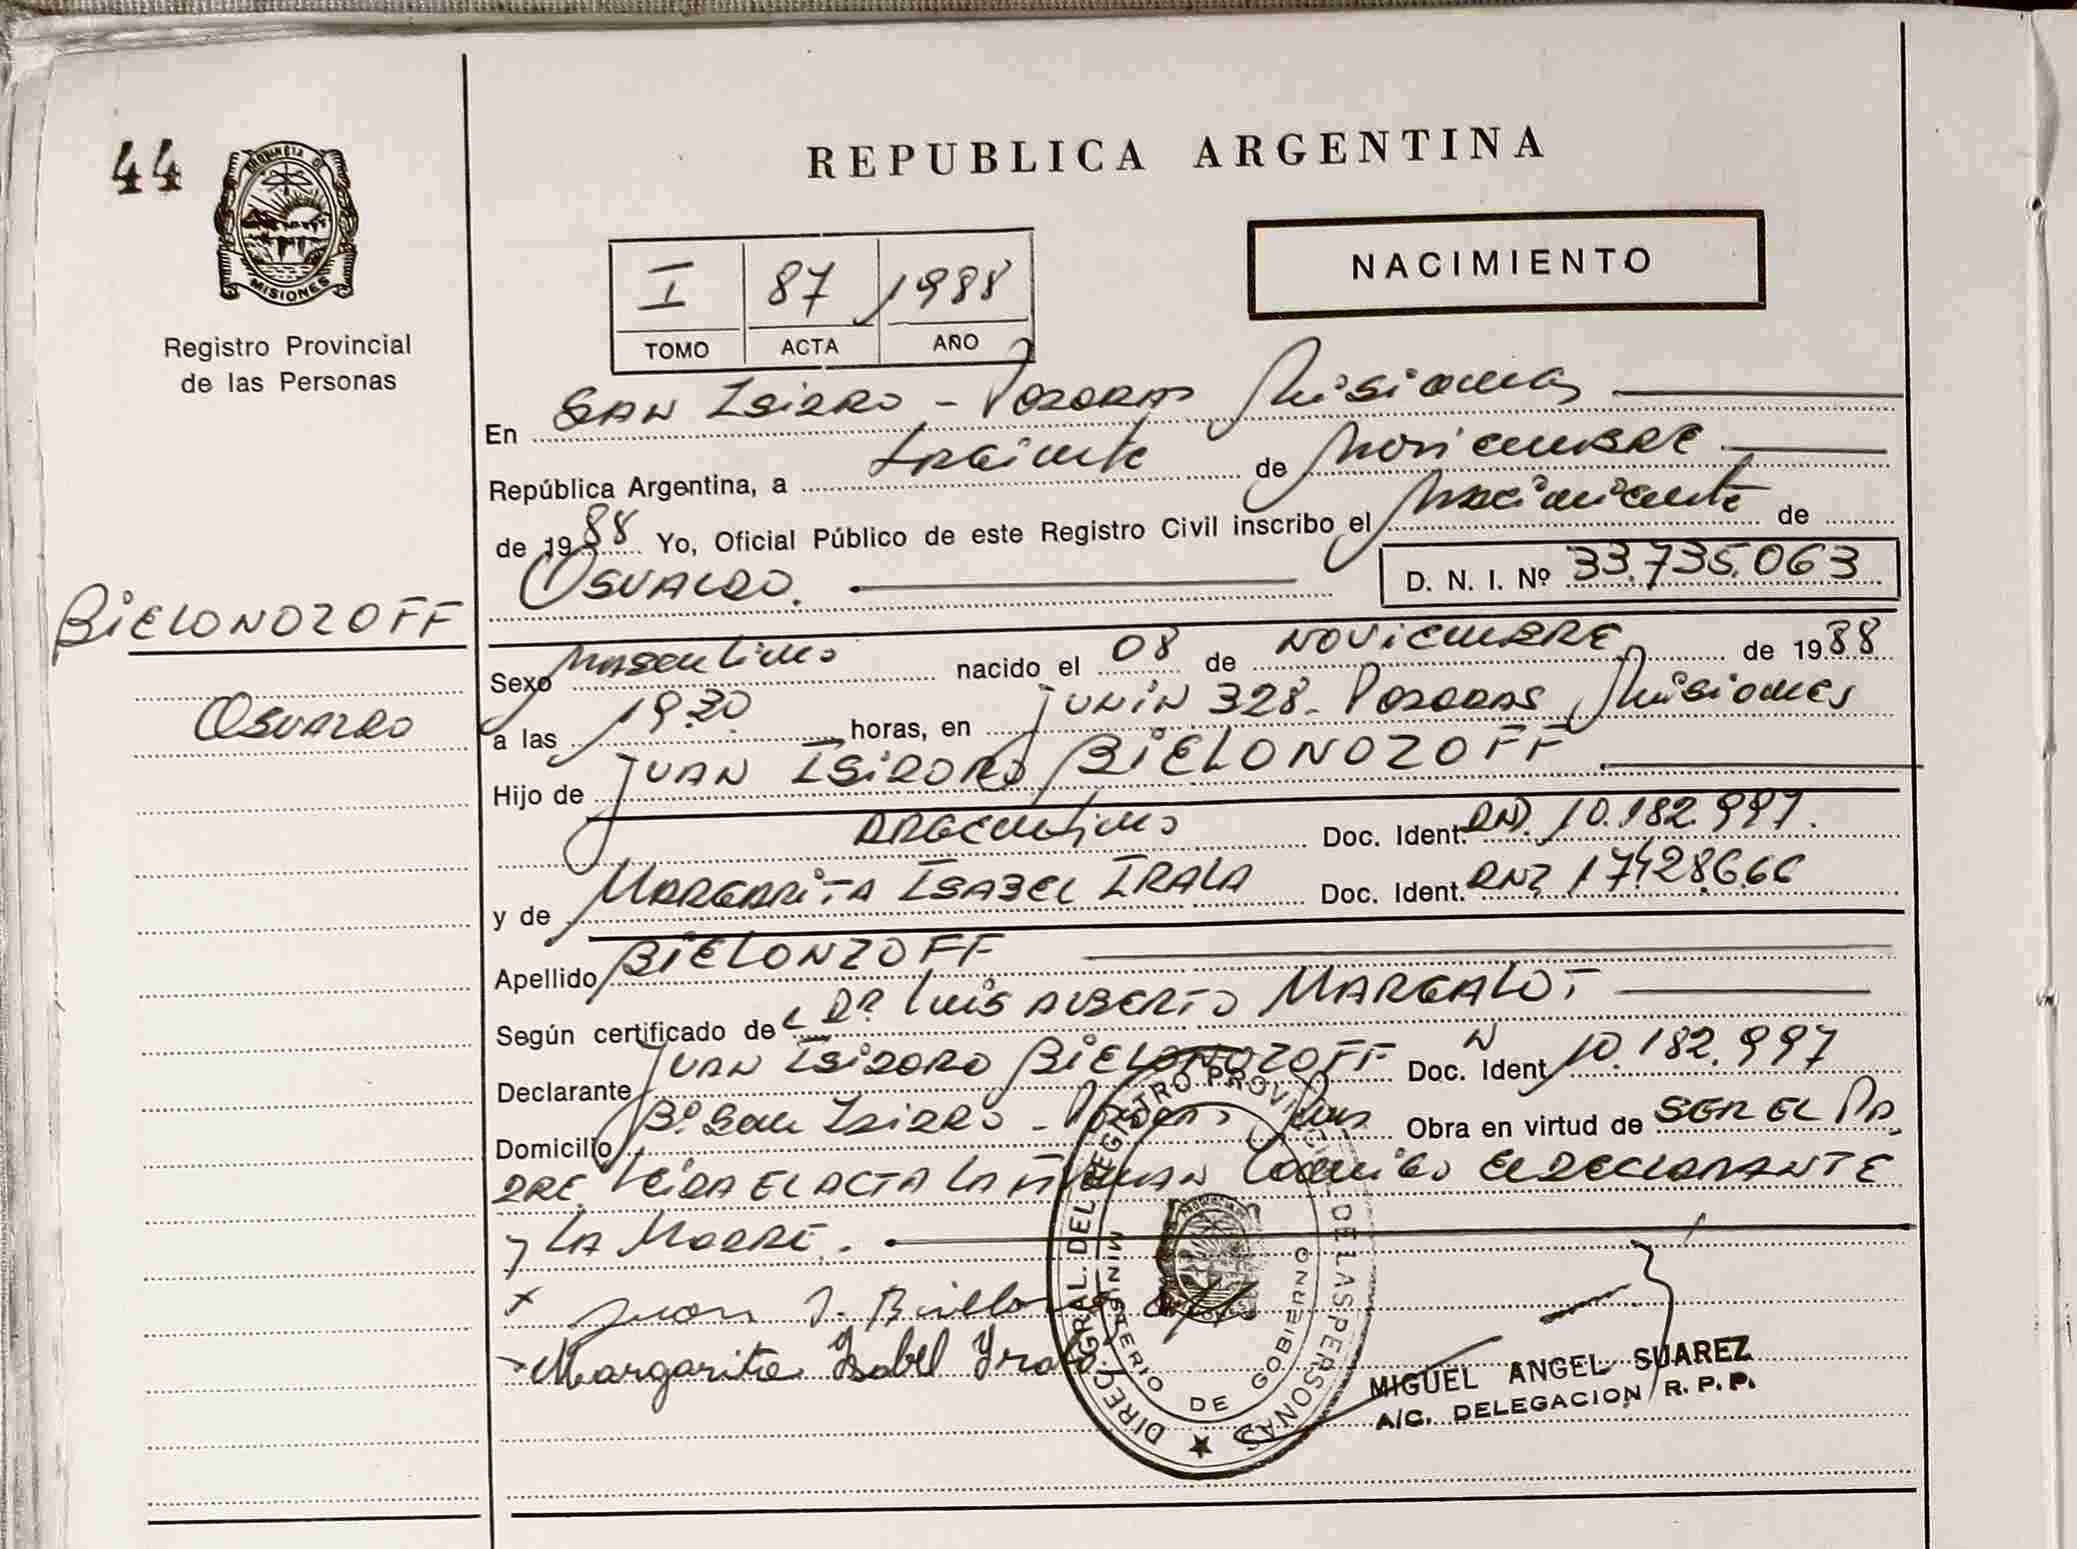 44
PROVINCIA DE
MISIONES
Registro Provincial
de las Personas
REPUBLICA ARGENTINA
I 87 1988
TOMO ACTA AÑO
NACIMIENTO
En SAN ISIDRO - POSADAS Misiones
República Argentina, a treinta de Noviembre
de 1988 Yo, Oficial Público de este Registro Civil inscribo el Nacimiento de
OSVALDO. D. N. I. Nº 33.735.063
BIELONOZOFF
OSVALDO
Sexo Masculino nacido el 08 de NOVIEMBRE de 1988
a las 19.30 horas, en JUNIN 328 - POSADAS Misiones
Hijo de JUAN ISIDORO BIELONOZOFF
ARGENTINO Doc. Ident. DNI. 10.182.997.
y de MARGARITA ISABEL IRALA Doc. Ident. DNI 17.428.666
Apellido BIELONZOFF
Según certificado del DR. LUIS ALBERTO MARGALOT
Declarante JUAN ISIDORO BIELONOZOFF Doc. Ident N 10.182.997
Domicilio Bº San ISIDRO - Posadas Mnes Obra en virtud de SER EL PA
DRE. LEIDA EL ACTA LA FIRMAN Conmigo EL DECLARANTE
y LA MADRE.
x Juan I.
Margarita Isabel Irala
DIREC. GRAL. DEL REGISTRO PROVINCIAL DE LAS PERSONAS
MINISTERIO DE GOBIERNO
MIGUEL ANGEL SUAREZ
A/C. DELEGACION R. P. P.